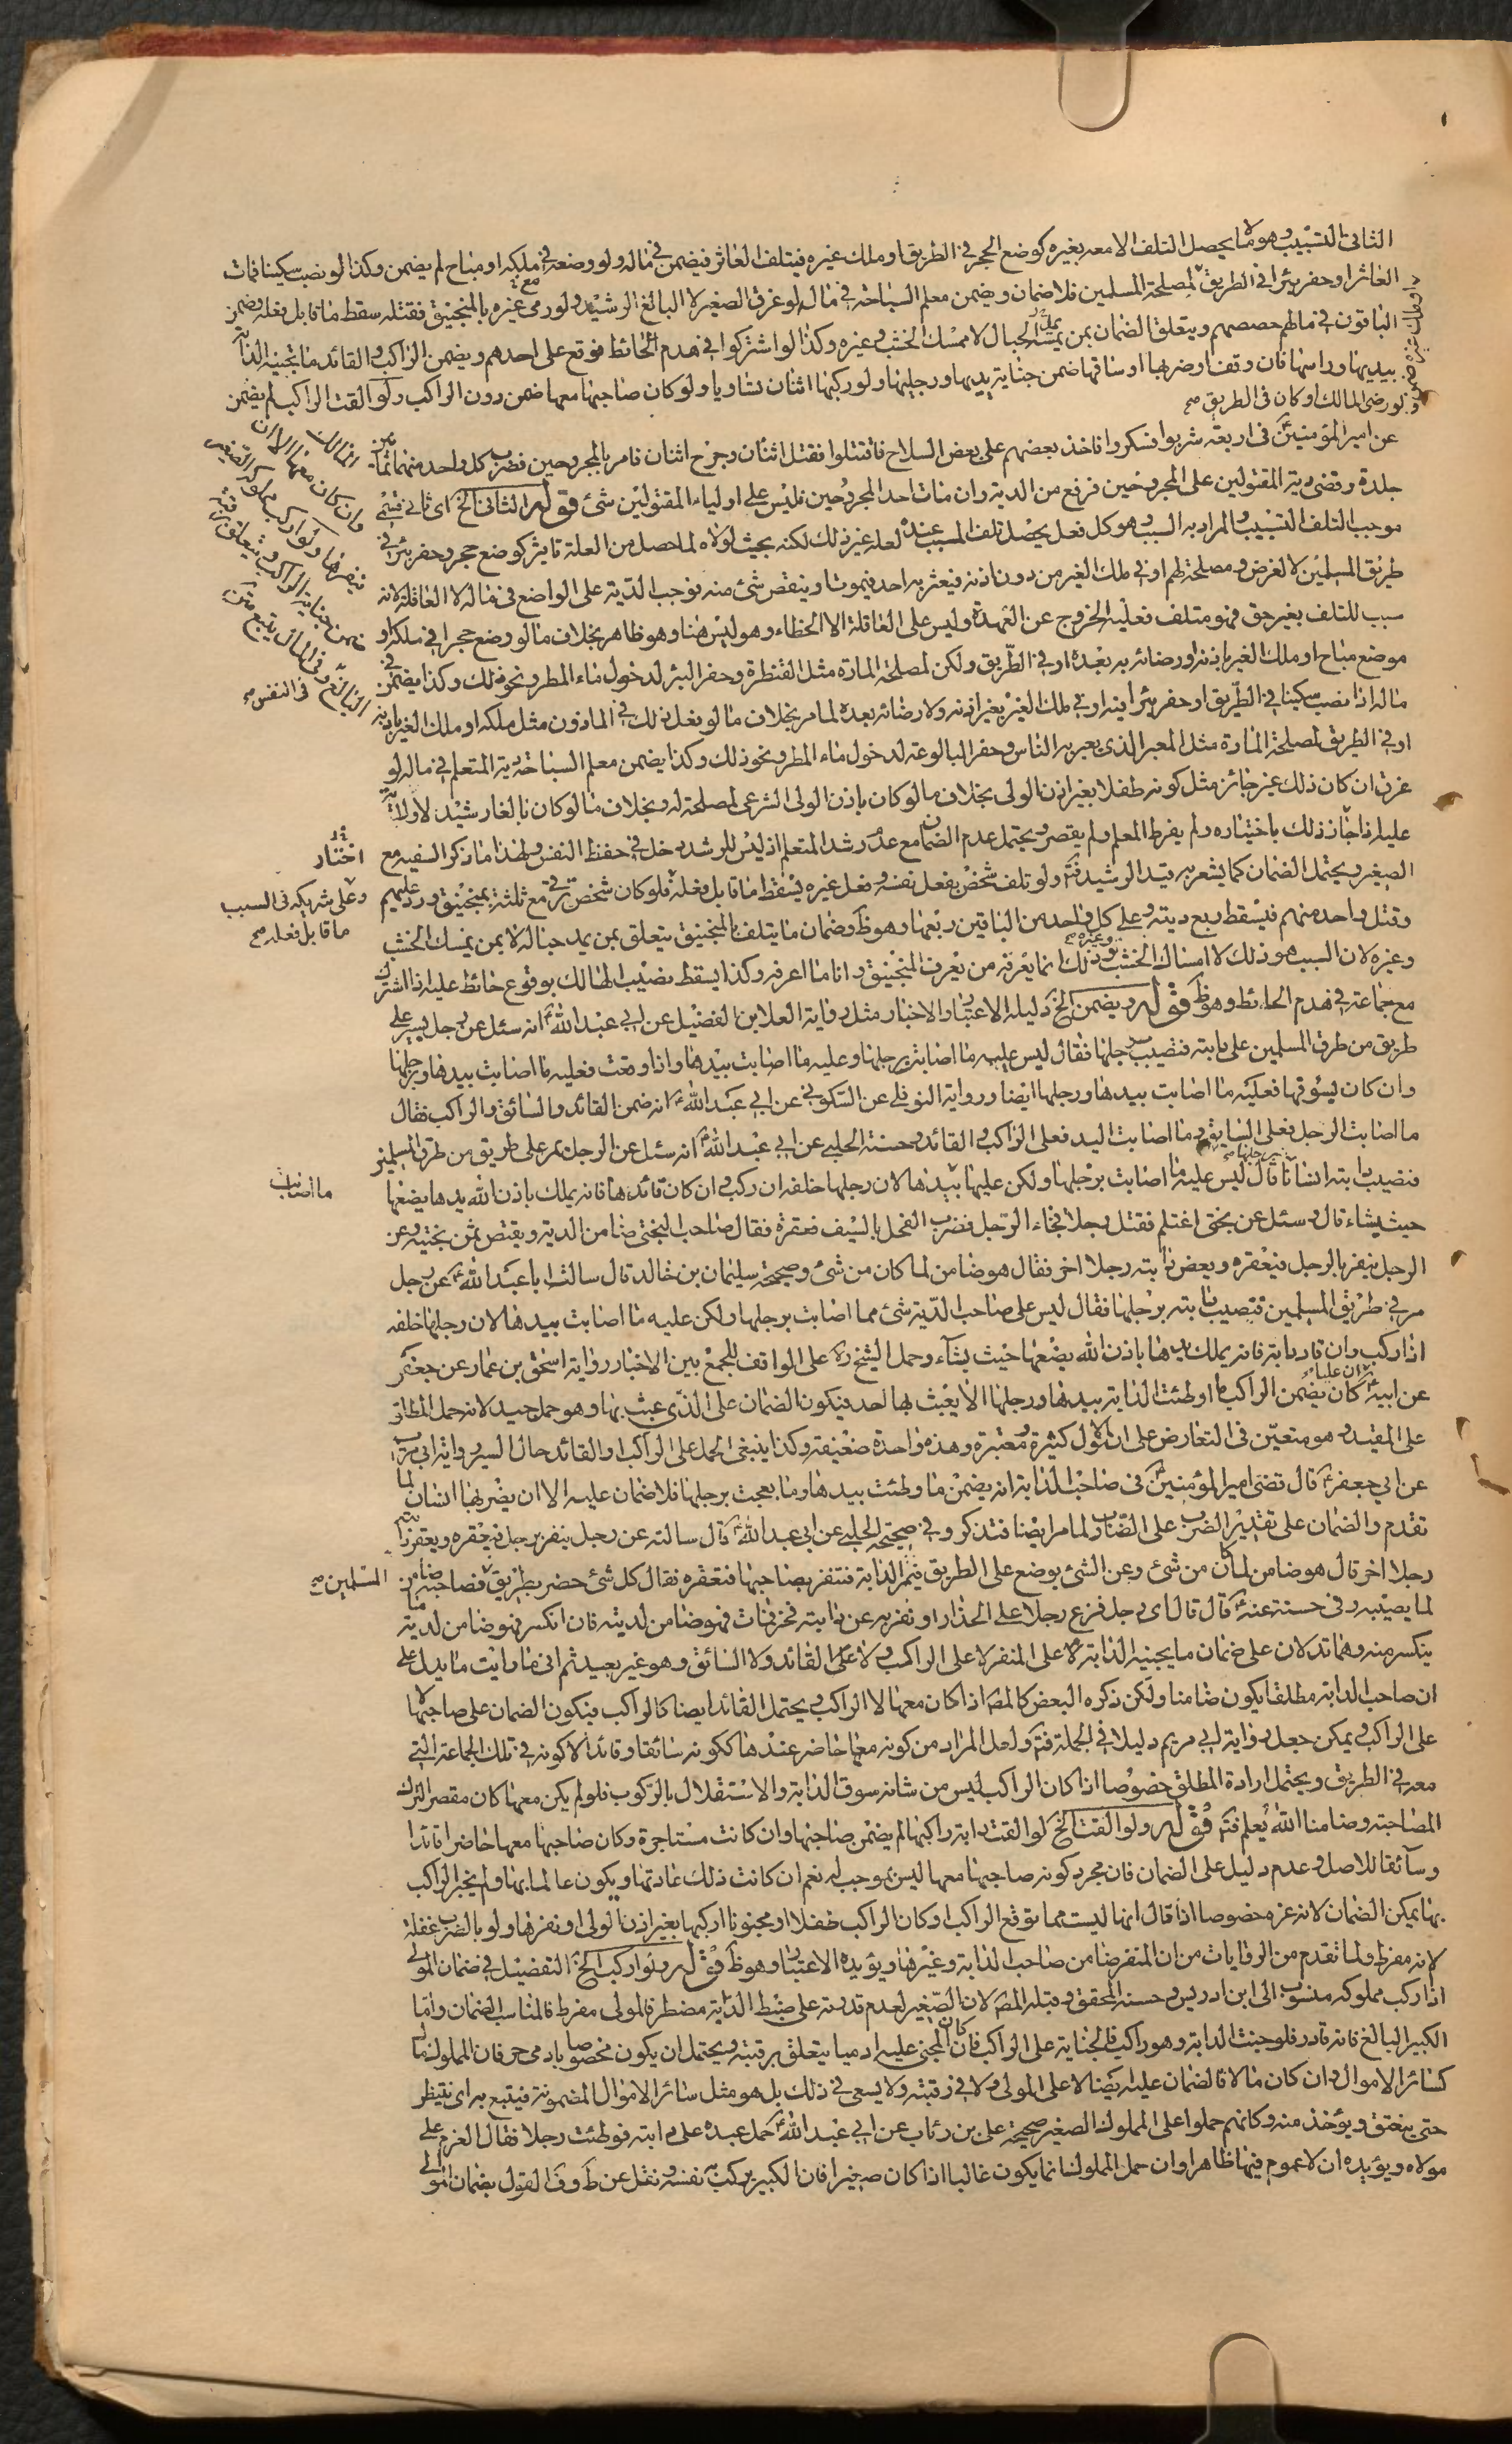 الثانى التسبيب وهو ما لا يحصل التلف الا معه بغيره كوضع الحجر فى الطريق او ملك غيره فيتلف العاثر فيضمن فى ماله ولو وضعه فى ملكه او مباح لم يضمن وكذا لو نصب سكينا فمات
العاثر او حفر بئرا فى الطريق لمصلحة المسلمين فلا ضمان ويضمن معلم السباحة فى ماله لو غرق الصغير لا البالغ الرشيد ولو رمى غيره بالمنجنيق فقتله سقط ما قابل فعله وضمن
الباقون فى مالهم حصصهم ويتعلق الضمان بمن يمد الحبال لا ممسك الخشب وغيره وكذا لو اشتركوا فى هدم الحائط فوقع على احدهم ويضمن الراكب والقائد ما تجنيه الدابة
بيديها وراسها فان وقف او ضربها او ساقها ضمن جناية يديها ورجليها ولو ركبها اثنان تساويا ولو كان صاحبها معها ضمن دون الراكب ولو القت الراكب لم يضمن
ولو رضى المالك او كان فى الطريق صح
المالك
وان كان معها الا ان
ينفرها ولو اركب مملوكه الصغير
ضمن جناية الراكب ويتعلق برقبة
البالغ وفى المال يتبع بعد عتقه
فى النفس صح
عن امير المؤمنين ع فى اربعة شربوا فسكروا فاخذ بعضهم على بعض السلاح فاقتتلوا فقتل اثنان وجرح اثنان فامر بالمجروحين فضرب كل واحد منهما ثمانين
جلدة وقضى دية المقتولين على المجروحين فرفع من الدية وان مات احد المجروحين فليس على اولياء المقتولين شئ قوله الثانى الخ اى ثانى قسمى
موجب التلف التسبيب والمراد به السبب وهو كل فعل يحصل تلف المسبب عنده لعلة غير ذلك لكنه بحيث لولاه لما حصل من العلة تاثير كوضع حجر وحفر بئر فى
طريق المسلمين لا لغرض ومصلحة لهم او فى ملك الغير من دون اذنه فيعثر به احد فيموت او ينقص شئ منه فوجب الدية على الواضع فى ماله لا العاقلة لانه
سبب للتلف بغير حق فهو متلف فعليه الخروج عن العهدة وليس على العاقلة الا الخطاء وهو ليس هنا وهو ظاهر بخلاف ما لو وضع حجرا فى ملكه او
موضع مباح او ملك الغير باذنه او رضائه به بعده او فى الطريق ولكن لمصلحة المارة مثل القنطرة وحفر البئر لدخول ماء المطر ونحو ذلك وكذا يضمن فى
ماله اذا نصب سكينا فى الطريق او حفر بئرا فيه او فى ملك الغير بغير اذنه ولا رضائه بعده لما مر بخلاف ما لو فعل ذلك فى الماذون مثل ملكه او ملك الغير باذنه
او فى الطريق لمصلحة المارة مثل المعبر الذى يعبر به الناس وحفر البالوعة لدخول ماء المطر ونحو ذلك وكذا يضمن معلم السباحة دية المتعلم فى ماله لو
غرق ان كان ذلك غير جائز مثل كونه طفلا بغير اذن الولى بخلاف ما لو كان باذن الولى الشرعى لمصلحة له وبخلاف ما لو كان بالغا رشيد لا ولاية
عليه اذا جاز ذلك باختياره ولم يفرط المعلم ولم يقصر ويحتمل عدم الضمان مع عدم رشد المتعلم اذ ليس للرشد دخل فى حفظ النفس ولهذا ما ذكر السفيه مع
اختار
الصغير ويحتمل الضمان كما يشعر به قيد الرشيد فتم ولو تلف شخص بفعل نفسه وفعل غيره يسقط ما قابل فعله فلو كان شخص مع ثلثة بمنجنيق ورد عليهم
وعلى شريكه فى السبب
ما قابل فعله صح
وقتل واحد منهم فيسقط ربع ديته وعلى كل واحد من الباقين ربعها وهو ظ وضمان ما يتلف المنجنيق يتعلق بمن يمد حباله لا بمن يمسك الخشب
وغيره لان السبب هو ذلك لا امساك الخشب ونحو ذلك انما يعرفه من يعرف المنجنيق وانا ما اعرفه وكذا يسقط نصيب الهالك بوقوع حائط عليه اذا اشترك
مع جماعة فى هدم الحائط وهو ظ قوله ويضمن الخ دليله الاعتبار والاخبار مثل رواية العلا بن الفضيل عن ابى عبد الله ع انه سئل عن رجل يسير على
طريق من طرق المسلمين على دابته فتصيب برجلها فقال ليس عليه ما اصابت برجلها وعليه ما اصابت بيدها واذا وقعت فعليه ما اصابت بيدها ورجلها
وان كان يسوقها فعليه ما اصابت بيدها ورجلها ايضا ورواية النوفلى عن السكونى عن ابى عبد الله ع انه ضمن القائد والسائق والراكب فقال
ما اصابت الرجل فعلى السايق وما اصابت اليد فعلى الراكب والقائد وحسنة الحلبى عن ابى عبد الله ع انه سئل عن الرجل يمر على طريق من طرق المسلمين
فتصيب دابته انسانا قال ليس عليه ما اصابت برجلها ولكن عليه ما اصابت بيدها لان رجلها خلفه ان ركب وان كان قائدها فانه يملك باذن الله يدها يضعها
ما اصابت
حيث يشاء قال وسئل عن بختى اغتلم فقتل رجلا فجاء الرجل فضرب الفحل بالسيف فعقره فقال صاحب البختى ضامن الدية ويقتص ثمن بختيه وعن
الرجل ينفر بالرجل فيعقره ويعض دابته رجلا اخر فقال هو ضامن لما كان من شئ وصحيحة سليمان بن خالد قال سالت ابا عبد الله ع عن رجل
مر فى طريق المسلمين فتصيب دابته برجلها فقال ليس على صاحب الدابة شئ مما اصابت برجلها ولكن عليه ما اصابت بيدها لان رجلها خلفه
اذا ركب وان قاد دابة فانه يملك يدها باذن الله يضعها حيث يشاء وحمل الشيخ ره على الواقف للجمع بين الاخبار رواية اسحق بن عمار عن جعفر
عن ابيه ع ان عليا ع كان يضمن الراكب ما اوطئت الدابة بيدها ورجلها الا يعبث بها احد فيكون الضمان على الذى عبث بها وهو حمل جيد لانه حمل المطلق
على المقيد وهو متعين فى التعارض على ان الاول كثيرة ومعتبرة وهذه واحدة ضعيفة وكذا ينبغى الحمل على الراكب والقائد حال السير ورواية ابى مريم
عن ابى جعفر ع قال قضى امير المؤمنين ع فى صاحب الدابة انه يضمن ما وطئت بيدها وما بعجت برجلها فلا ضمان عليه الا ان يضربها انسان لما
تقدم والضمان على تقدير الضرب على الضارب ولما مر ايضا فتذكر وفى صحيحة الحلبى عن ابى عبد الله ع قال سالته عن رجل ينفر برجل فيعقره ويعقر دابته
رجلا اخر قال هو ضامن لما كان من شئ وعن الشئ يوضع على الطريق فتمر الدابة فتنفر بصاحبها فتعقره فقال كل شئ حضر بطريق فصاحبه ضامن
المسلمين صح
لما يصيبه وفى حسنة عنه ع قال قال اى رجل فزع رجلا على الجدار او نفر به عن دابته فخر فمات فهو ضامن لديته فان انكسر فهو ضامن لدية ما
ينكسر منه وهما تدلان على ضمان ما يجنيه الدابة على المنفر لا على الراكب ولا على القائد ولا السائق وهو غير بعيد ثم انى ما رايت ما يدل على
ان صاحب الدابة مطلقا يكون ضامنا ولكن ذكره البعض كالمصه اذا كان معها لا الراكب ويحتمل القائد ايضا كالراكب فيكون الضمان على صاحبها لا
على الراكب ويمكن جعل رواية ابى مريم دليلا فى الجملة فتم ولعل المراد من كونه معها حاضر عندها ككونه سائقا وقائدا لا كونه فى تلك الجماعة التى
معه فى الطريق ويحتمل ارادة المطلق خصوصا اذا كان الراكب ليس من شانه سوق الدابة والاستقلال بالركوب فلو لم يكن معها كان مقصر الترك
المصاحبة وضامنا الله يعلم فتم قوله ولو القت الخ لو القت دابة راكبها لم يضمن صاحبها وان كانت مستاجرة وكان صاحبها معها حاضرا قائدا
وسائقا للاصل وعدم دليل على الضمان فان مجرد كونه صاحبها معها ليس بموجب له نعم ان كانت ذلك عادتها ويكون عالما بها ولم يخبر الراكب
بها يمكن الضمان لانه غره خصوصا اذا قال انها ليست مما توقع الراكب او كان الراكب طفلا او مجنونا اركبها بغير اذن الولى او نفرها ولو بالضرب غفلة
لانه مفرط ولما تقدم من الروايات من ان المنفر ضامن صاحب الدابة وغيرها ويؤيده الاعتبار وهو ظ قوله ولو اركب الخ التفضيل فى ضمان المولى
اذا ركب مملوكه منسوب الى ابن ادريس وحسنه المحقق وقبله المصه لان الصغير لعدم قدرته على ضبط الدابة مضطر فالمولى مفرط فالمناسب الضمان واما
الكبير البالغ فانه قادر فلو جنت الدابة وهو راكب فالجناية على الراكب فان كان المجنى عليه ادميا يتعلق برقبته ويحتمل ان يكون مخصوصا بادمى حر فان المملوك مال
كسائر الاموال وان كان مالا فالضمان عليه ايضا لا على المولى ولا فى رقبته ولا يسعى فى ذلك بل هو مثل سائر الاموال المضمونة فيتبع به اى ينتظر
حتى ينعتق ويؤخذ منه وكانهم حملوا على المملوك الصغير صحيحة على بن رئاب عن ابى عبد الله ع حمل عبده على دابته فوطئت رجلا فقال الغرم على
مولاه ويؤيده ان لا عموم فيها ظاهرا وان حمل المملوك انما يكون غالبا اذا كان صغيرا فان الكبير يركب بنفسه ونقل عن ط وف القول بضمان المولى